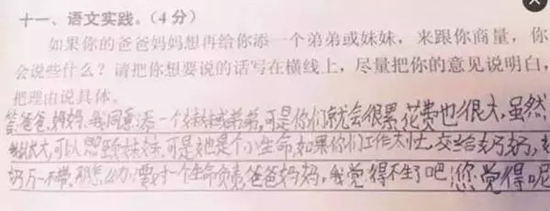 十一、语文实践。(4分)
如果你的爸爸妈妈想再给你添一个弟弟或妹妹,来跟你商量,你
会说些什么?请把你想要说的话写在横线上,尽量把你的意见说明白,
把理由说具体。
答:爸爸,妈妈,我同意添一个妹妹或弟弟,可是你们就会很累,花费也很大,虽然
我长大,可以照顾妹妹,可是她是个小生命,如果你们工作太忙,交给奶奶,
奶奶万一不带,那怎么办,要对一个生命负责,爸爸妈妈,我觉得不生了吧!您觉得呢